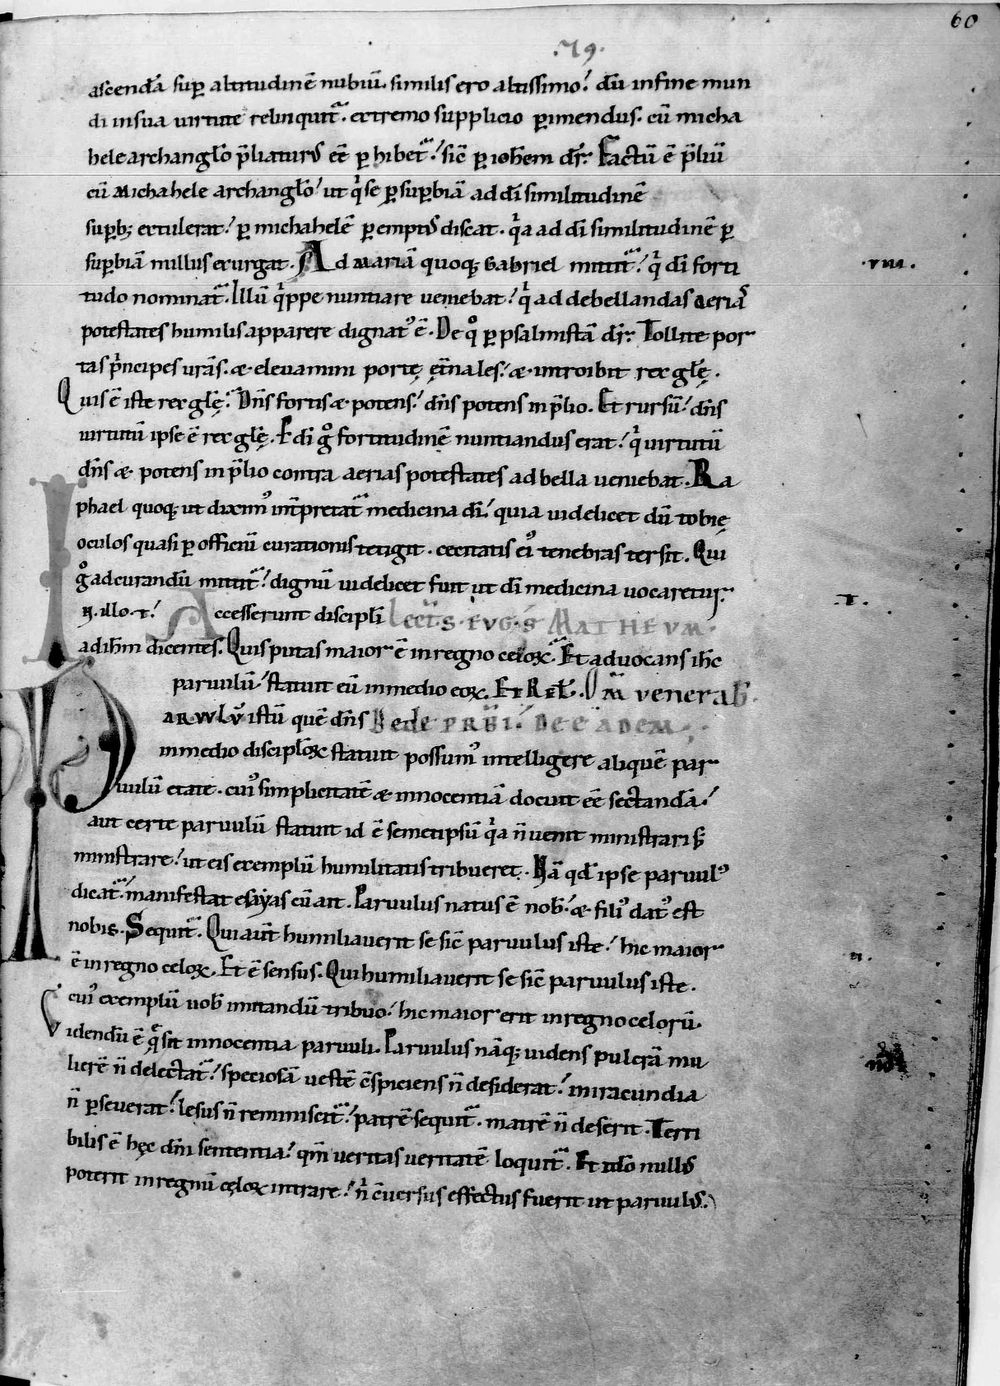 60
.79.
ascendā sup̄ altitudinē nubiū. similis ero altissimo? dū in fine mun
di in sua uirtute relinquit̄. extremo supplicio p̄imendus. cū micha
hele archanglo p̄liaturꝰ eē p̄hibet̄? sic̄ p̄ iohem dr̄: Factū ē p̄liū
cū michahele archanglo? ut q̇ se p̄ sup̄biā ad dī similitudinē
sup̄b; extulerat? p̄ michahelē p̄emptꝰ discat. q̇a ad dī similitudinē p̄
sup̄biā nullus exurgat. Ad mariā quoq; Gabriel mittit̄? q̇ dī forti
.VIII.
tudo nominat̄. Illū q̇ppe nuntiare ueniebat? q̇ ad debellandas aeriaꝰ
potestates humilis apparere dignatꝰ ē. De qo p̄ psalmistā dr̄: Tollite por
tas ṗncipes urās. & eleuamini portę ęt̄nales? & introibit rex glę̄.
Quis ē iste rex glę̄? Dn̄s fortis & potens? dn̄s potens in p̄lio. Et rursū? dn̄s
uirtutū ipse ē rex glę̄. P dī go fortitudinē nuntiandus erat? q̇ uirtutū
dn̄s & potens in p̄lio contra aerias potestates ad bella ueniebat. Ra
phael quoq; ut diximꝰ int̄pretat̄ medicina dī? quia uidelicet dū tobię
oculos quasi p̄ officiū curationis tetigit. cecitatis eiꝰ tenebras tersit. Qui
go ad curandū mittit̄? dignū uidelicet fuit ut dī medicina uocaretur.
I
N. illo. t. Accesserunt discipli lect̄. S. eug. s. MATHEUM.
.I.
ad ihm dicentes. Quis putas maior ē in regno celoꝝ? Et aduocans ihc
paruulū? statuit eū in medio eoꝝ. Et Rel̄. Om̄ venerab̄.
PARUULŪ istū quē dn̄s Bede prb̄i. de eadem.
in medio disciploꝝ statuit possumꝰ intelligere aliquē par
uulū etate. cuiꝰ simplicitatē & innocentiā docuit eē sectandā?
aut certe paruulū statuit id ē semetipsū q̇a n̄ uenit ministrari s;
ministrare? ut eis exemplū humilitatis tribueret. Nā qd̄ ipse paruulꝰ
dicat̄? manifestat esayas cū ait. Paruulus natus ē nob̄? & filiꝰ datꝰ est
nobis. Sequit̄. Qui aut̄ humiliauerit se sic̄ paruulus iste? hic maior
.II.
ē in regno celoꝝ. Et ē sensus. Qui humiliauerit se sic̄ paruulus iste.
cuiꝰ exemplū uob̄ imitandū tribuo? hic maior erit in regno celorū.
Videndū ē q̄ sit innocentia paruuli. Paruulus nāq; uidens pulcrā mu
lierē n̄ delectat̄? speciosā uestē c̄spiciens n̄ desiderat? in iracundia
n̄ p̄seuerat? lesus n̄ reminiscit̄? patrē sequit̄. matrē n̄ deserit. Terri
bilis ē hęc dn̄i sententia? qm̄ ueritas ueritatē loquit̄. Et ido nullus
poterit in regnū celoꝝ intrare? n̄ c̄uersus effectus fuerit ut paruulꝰ.